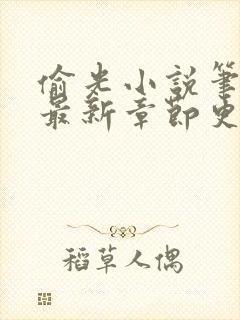 偷光小说筆
最新章節史
稻草人偶